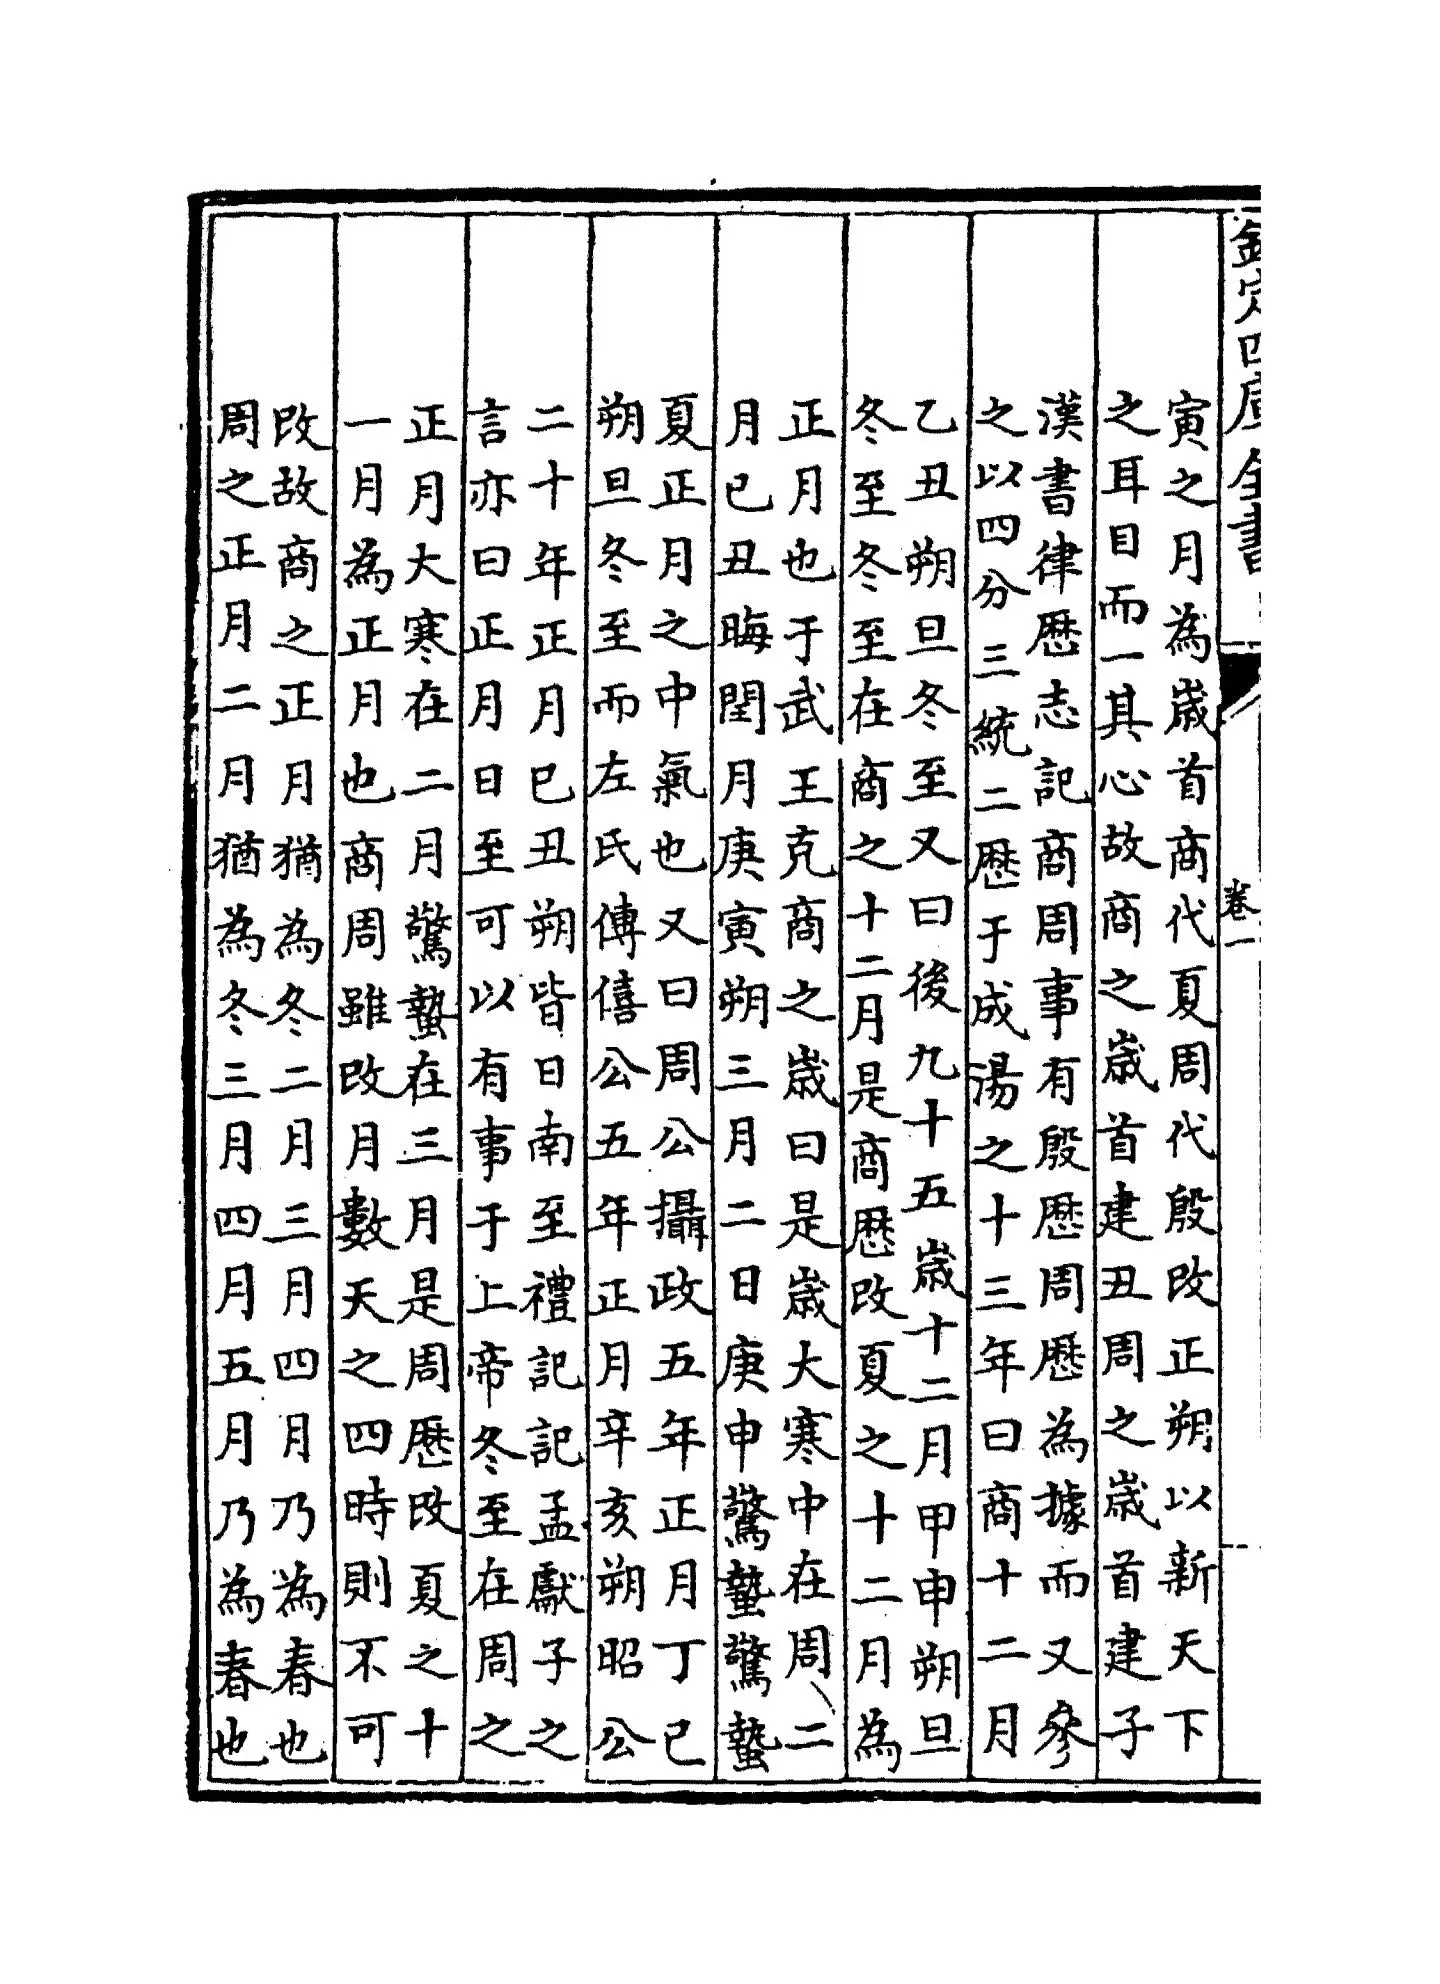 欽定四庫全書
卷一
寅之月為歲首商代夏周代殷改正朔以新天下
之耳目而一其心故商之歲首建丑周之歲首建子
漢書律歷志記商周事有殷歷周歷為據而又參
之以四分三統二歷于成湯之十三年曰商十二月
乙丑朔旦冬至又曰後九十五歲十二月甲申朔旦
冬至冬至在商之十二月是商歷改夏之十二月為
正月也于武王克商之歲曰是歲大寒中在周二
月已丑晦閏月庚寅朔三月二日庚申驚蟄驚蟄
夏正月之中氣也又曰周公攝政五年正月丁巳
朔旦冬至而左氏傳僖公五年正月辛亥朔昭公
二十年正月已丑朔皆日南至禮記記孟獻子之
言亦曰正月日至可以有事于上帝冬至在周之
正月大寒在二月驚蟄在三月是周歷改夏之十
一月為正月也商周雖改月數天之四時則不可
改故商之正月猶為冬二月三月四月乃為春也
周之正月二月猶為冬三月四月五月乃為春也